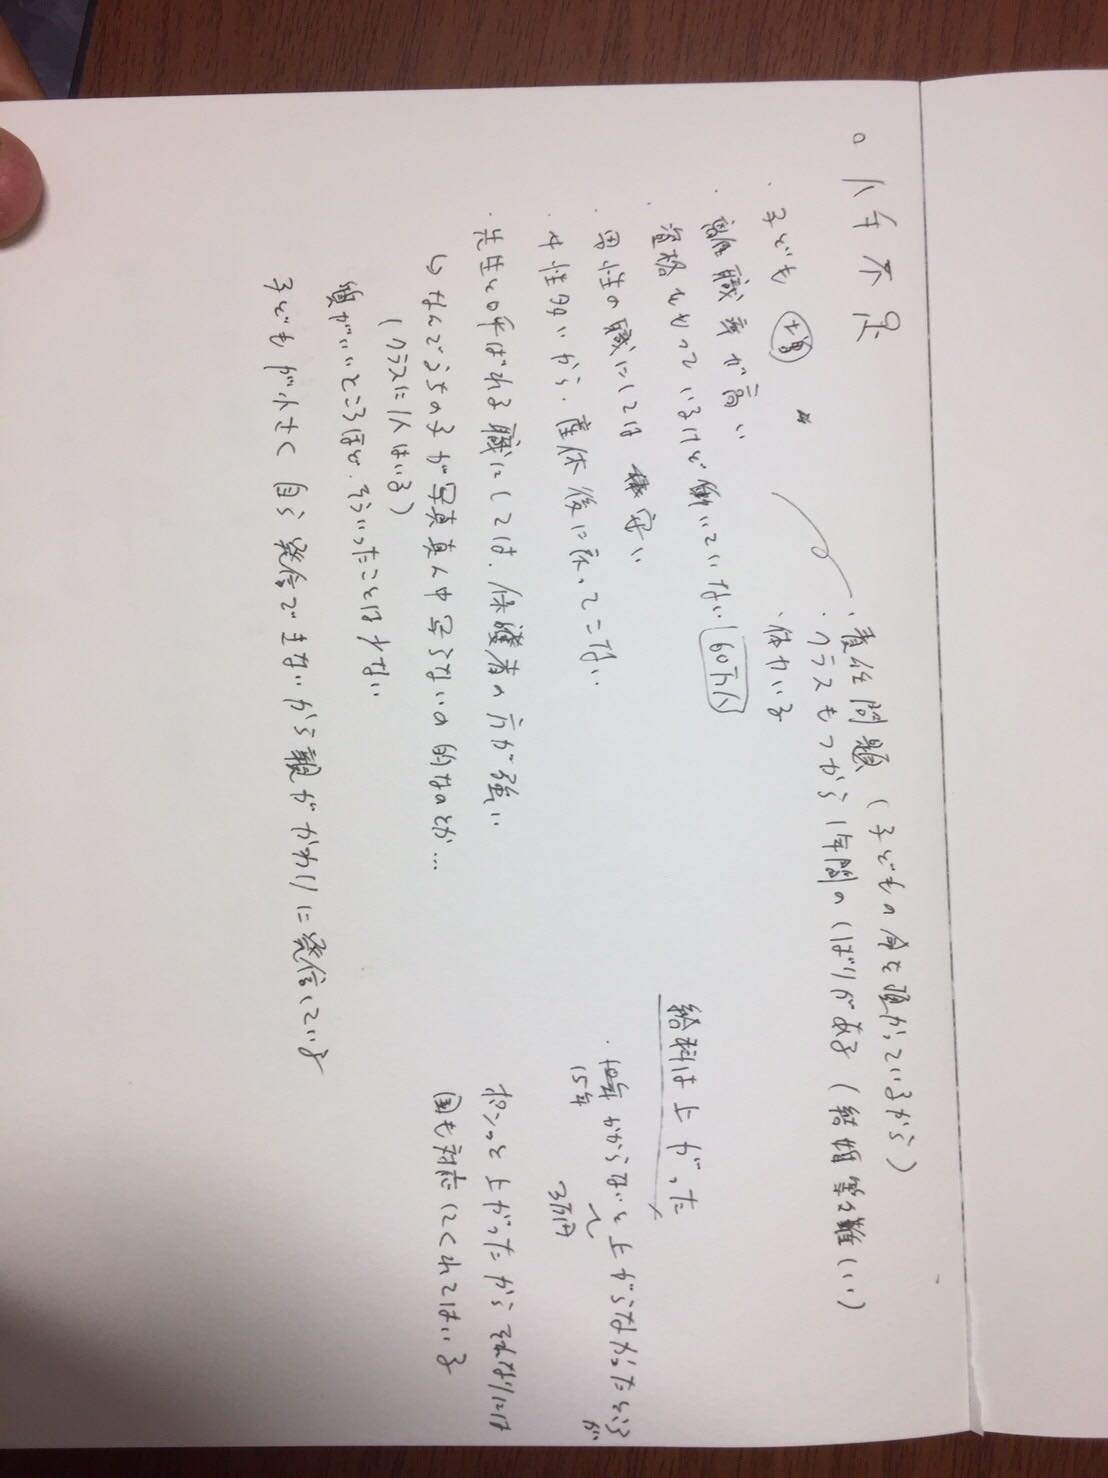 。人手不足
・子ども 増
・離職率が高い
・責任問題(子どもの命を預かっているから)
・クラスもつから1年間のしばりがある(結婚等々難しい)
・体力いる
・資格をもっているけど働いていない 60万人
・男性の職にしては 安い
・女性多いから、産休後に戻ってこない
・先生と呼ばれる職にしては、保護者の方が強い
↳ なんでうちの子が写真真ん中写らないの的なのとか…
(クラスに1人はいる)
質がいいところほど、そういったことは少ない
子どもが小さく自ら発信できないから親がかわりに発信している
給料は上がった
・10年 かからないと上がらなかったところが
15年
3万円
ポンっと上がったからそれなりには
国も対応してくれてはいる